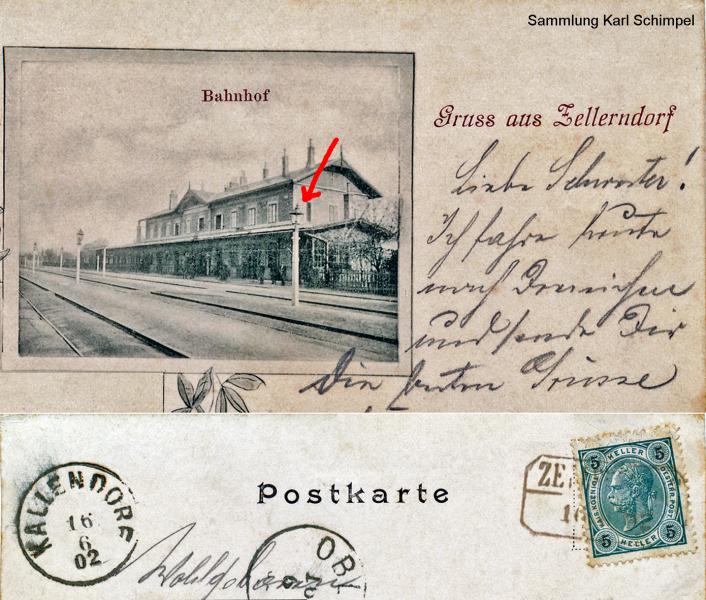 Sammlung Karl Schimpel
Bahnhof
Gruss aus Zellerndorf
Liebe Schwester!
Ich fahre heute
nach
und sende Dir
Die besten Grüsse
KALLENDORF
16
6
02
Postkarte
OB
ZE
16
5 HELLER 5
5 HELLER 5